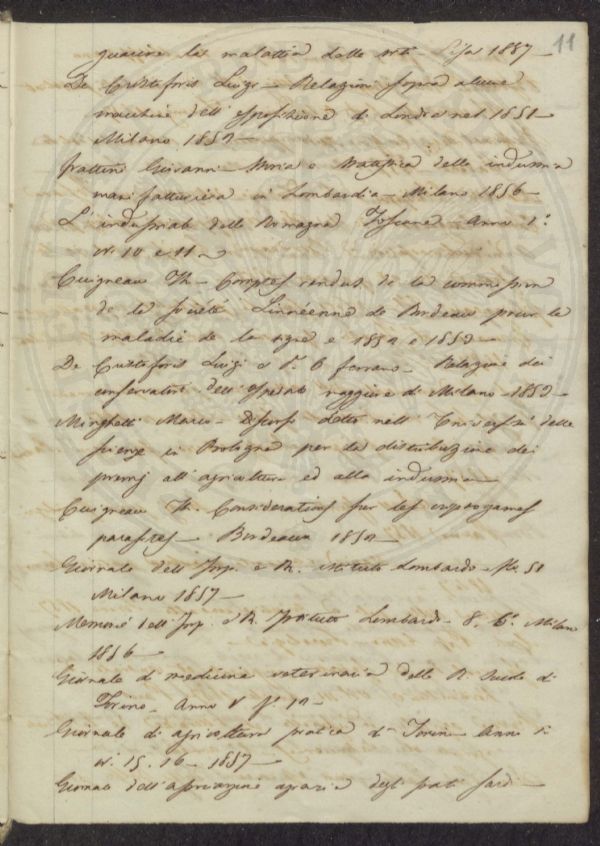 11
guarire la malattia delle viti Pisa 1857 -
De Cristoforis Luigi - Relazioni sopra alcune
macchine dell'esposizione di Londra nel 1851 -
Milano 1852 -
Frattini Giovanni - Storia e statistica della industria
manifatturiera in Lombardia - Milano 1856 -
L'industriale della Romagna Toscana - Anno 1°.
n. 10 e 11 -
Cuigneau Th - Comptes rendus de la commission
de la société Linnéenne de Bordeaux pour la
maladie de la vigne e 1852 e 1853 -
De Cristoforis Luigi e G. Ferrano - Relazione dei
conservatori dell'Ospitale maggiore di Milano - 1853 -
Minghetti Marco - Discorsi letti nell' Università delle
scienze in Bologna per la distribuzione dei
premj all'agricoltura ed alla industria -
Cuigneau Th. Considerations sur les cryptogames
parasites - Bordeaux 1852 -
Giornale dell'Imp. e R. istituto Lombardo - 51
Milano 1857 -
Memorie dell'Imp. e R. Istituto Lombardo - 8. 6°. Milano
1856 -
Giornale di medicina veterinaria della R. Scuola di
Torino - Anno V 12 -
Giornale di agricoltura pratica di Torino Anno 1°
n. 15. 16 - 1857 -
Giornale dell'associazione agraria degli stati sardi -